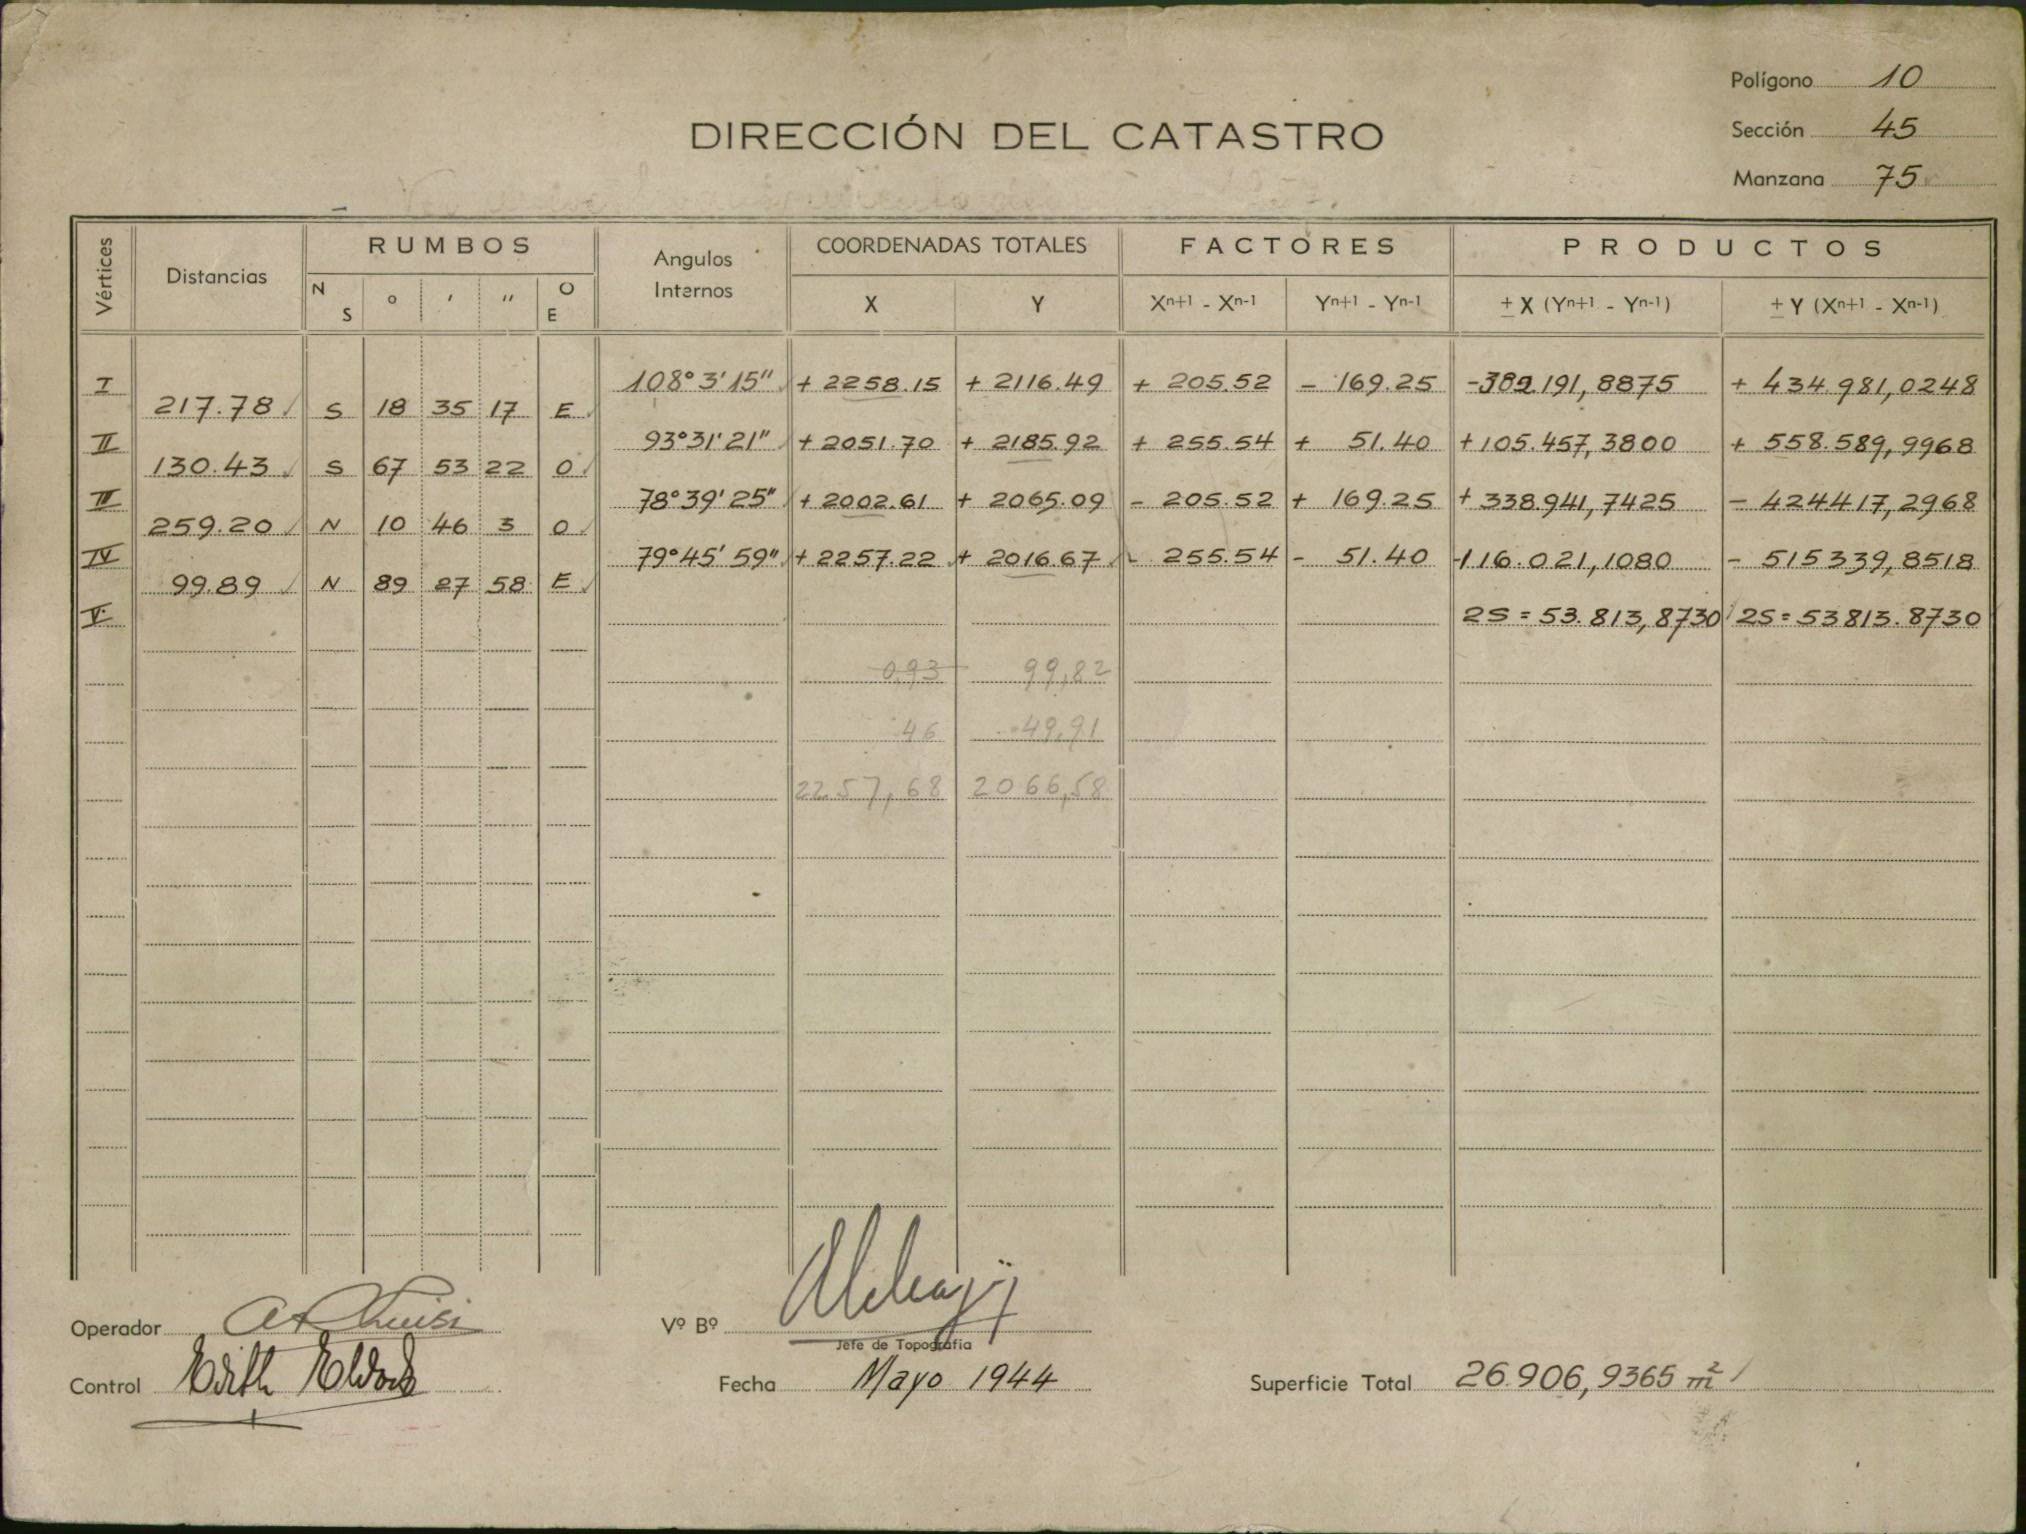 Polígono 10
DIRECCIÓN DEL CATASTRO
Sección 45
Manzana 75
Vértices Distancias RUMBOS Angulos Internos COORDENADAS TOTALES FACTORES PRODUCTOS
N S ° ′ ″ O E X Y Xn+1 - Xn-1 Yn+1 - Yn-1 ± X (Yn+1 - Yn-1) ± Y (Xn+1 - Xn-1)
I 108° 3' 15" + 2258.15 + 2116.49 + 205.52 - 169.25 -382.191,8875 + 434.981,0248
217.78 S 18 35 17 E
II 93° 31' 21" + 2051.70 + 2185.92 + 255.54 + 51.40 +105.457,3800 + 558.589,9968
130.43 S 67 53 22 O
III 78° 39' 25" + 2002.61 + 2065.09 - 205.52 + 169.25 + 338.941,7425 - 424417,2968
259.20 N 10 46 3 O
IV 79° 45' 59" + 2257.22 + 2016.67 - 255.54 - 51.40 -116.021,1080 - 515339,8518
99.89 N 89 27 58 E
V 2S = 53.813,8730 2S = 53813.8730
0,93 99,82
46 49,91
2257,68 2066,58
Operador
Vº Bº
Jefe de Topografía
Control Edith
Fecha Mayo 1944
Superficie Total 26.906,9365 m²